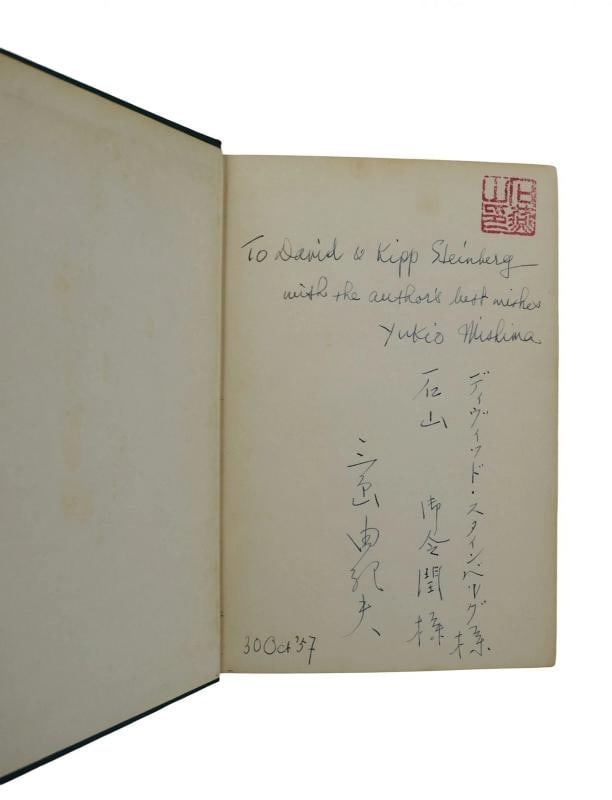 To David & Kipp Steinberg
with the author's best wishes
Yukio Mishima
ディヴィッド・スタインベルグ様
石山 御令閨様
三島由紀夫
30 Oct '57